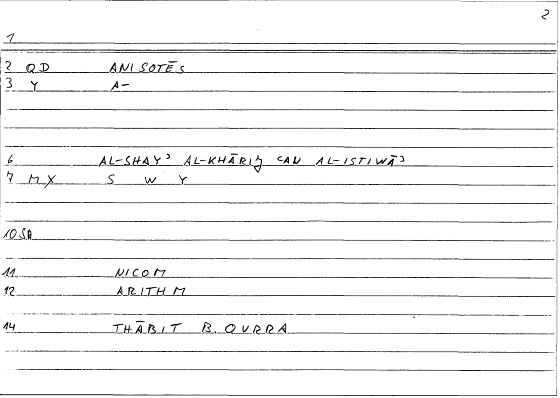 2
1
2 QD ANISOTĒS
3 Y A-
6 AL-SHAYʾ AL-KHĀRIǧ ʿAN AL-ISTIWĀʾ
7 MX S W Y
10 SA
11 NICOM
12 ARITHM
14 THĀBIT B. QURRA